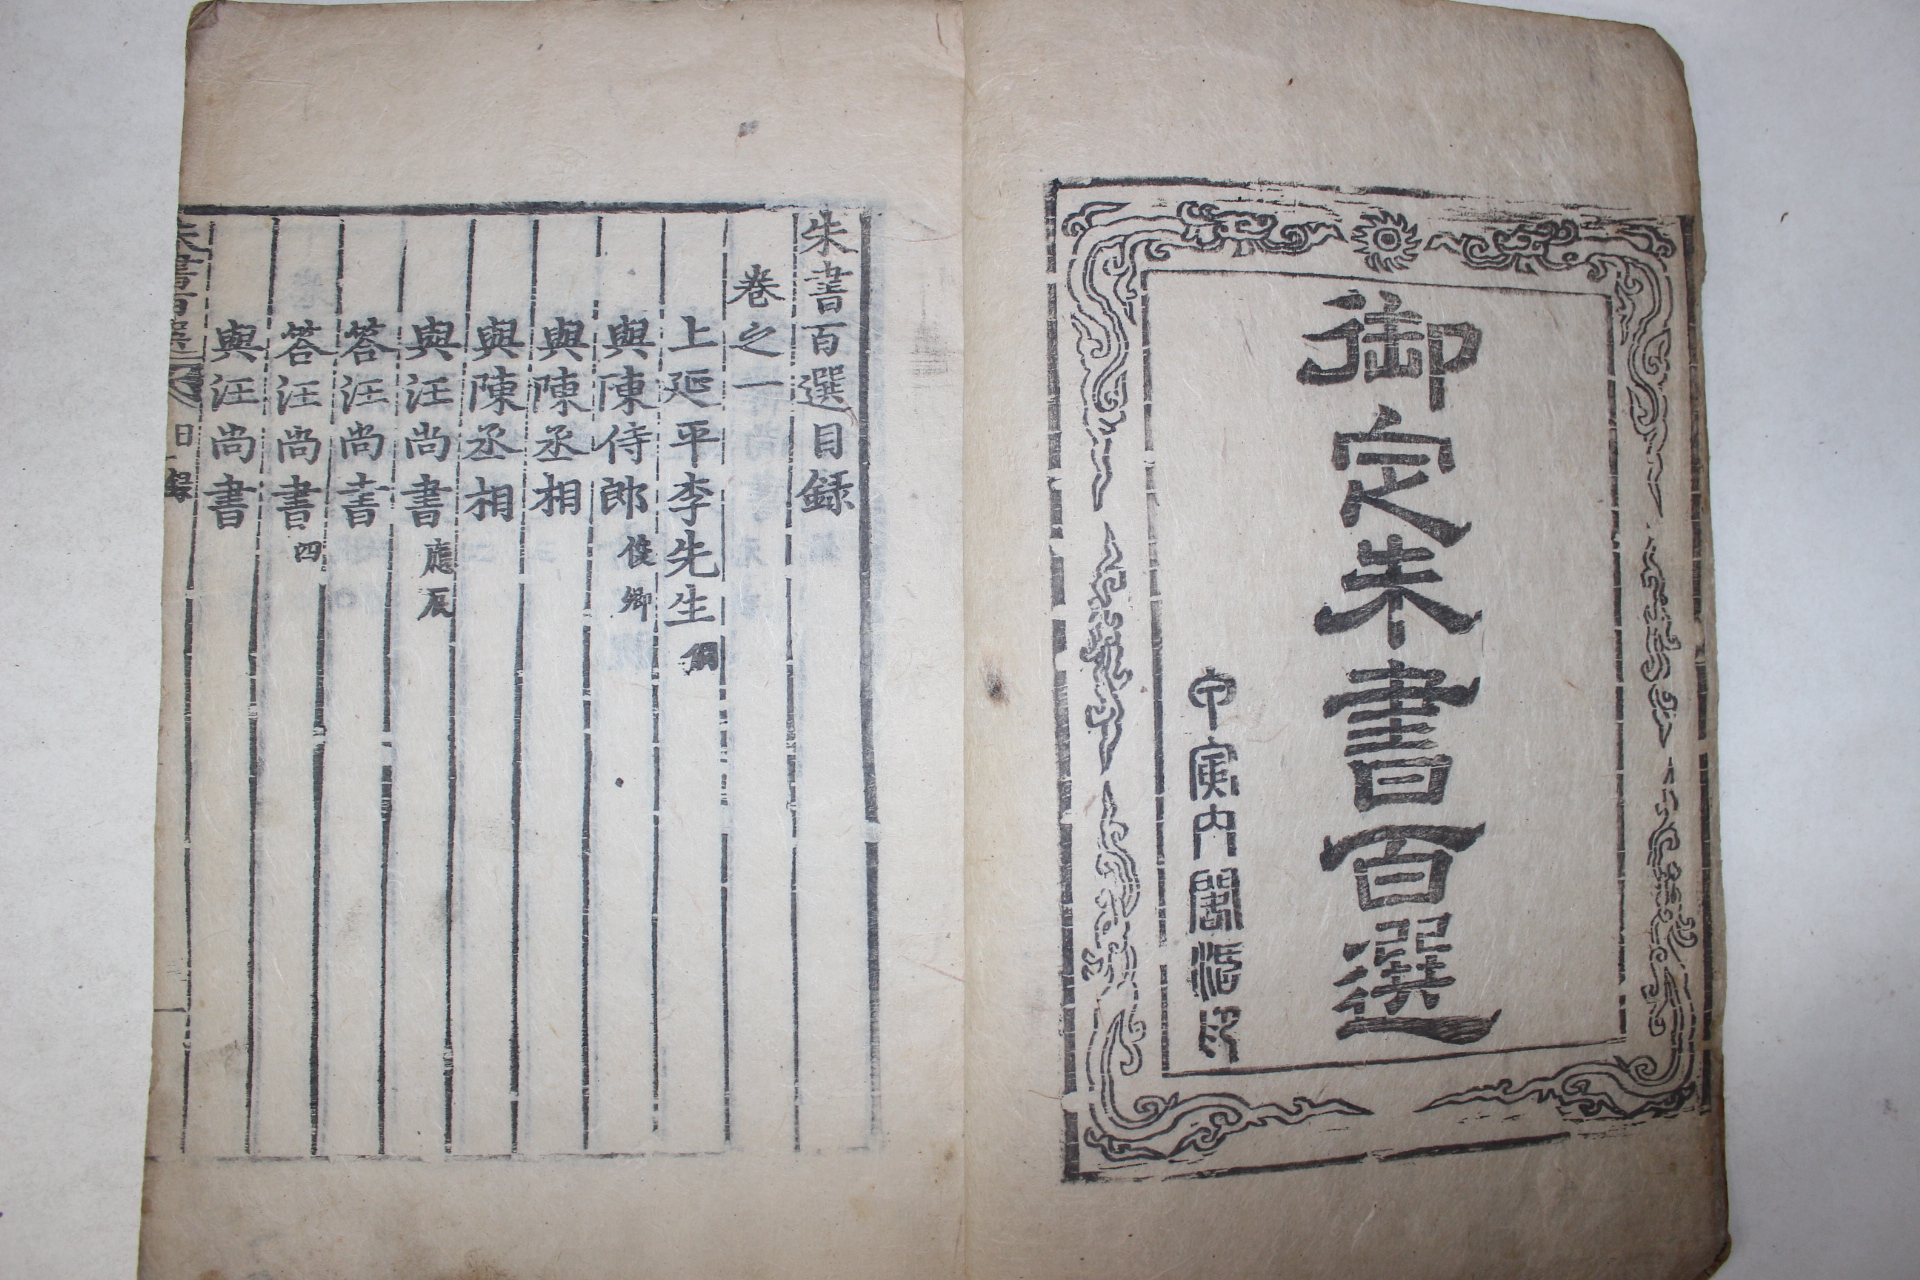 御定朱書百選
甲寅內閣活印
朱書百選目録
卷之一
上延平李先生 侗
與陳侍郎 俊卿
與陳丞相
與陳丞相
與汪尚書 應辰
答汪尚書
答汪尚書 四
與汪尚書
朱書百選 目録 一